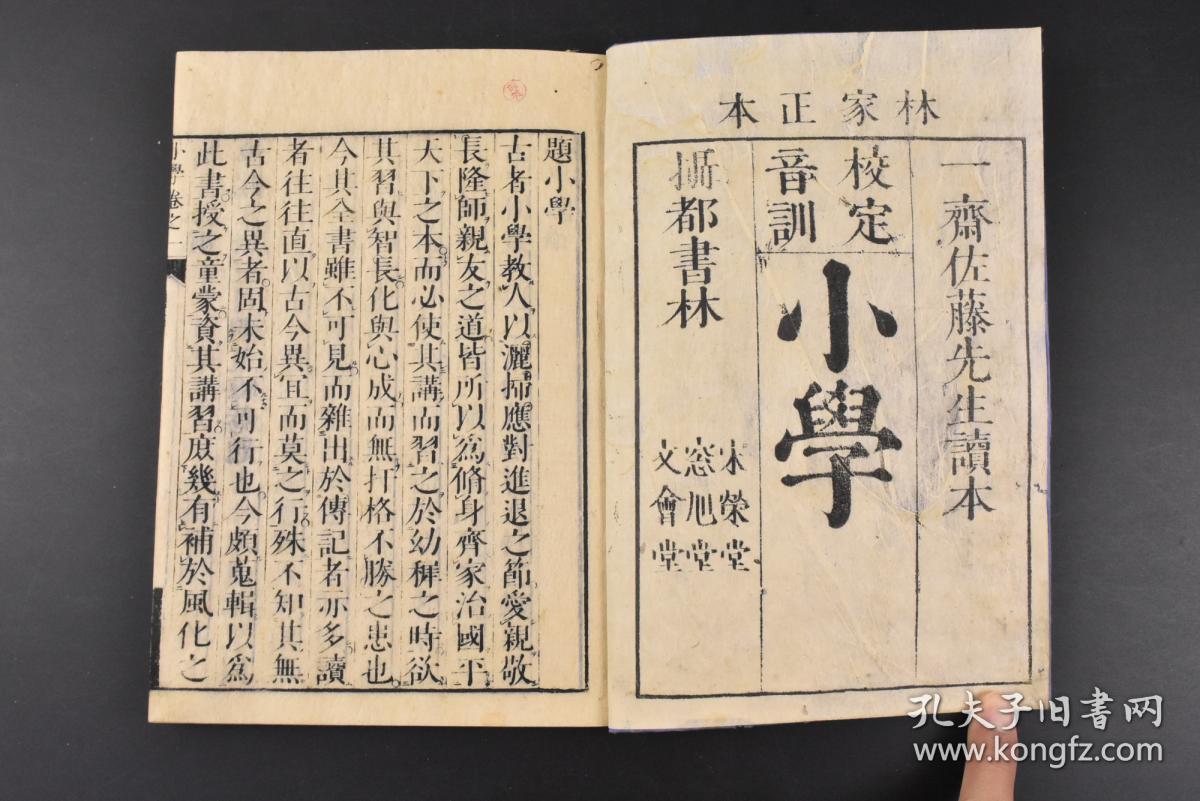 林家正本
一齋佐藤先生讀本
校定
音訓
小學
攝都書林
宋榮堂
窓旭堂
文會堂
題小學
古者小學教人以灑掃應對進退之節愛親敬
長隆師親友之道皆所以爲脩身齊家治國平
天下之本而必使其講而習之於幼穉之時欲
其習與智長化與心成而無扞格不勝之患也
今其全書雖不可見而雜出於傳記者亦多讀
者往往直以古今異宜而莫之行殊不知其無
古今之異者固未始不可行也今頗蒐輯以爲
此書授之童蒙資其講習庶幾有補於風化之
小學卷之一
孔夫子旧书网
www.kongfz.com